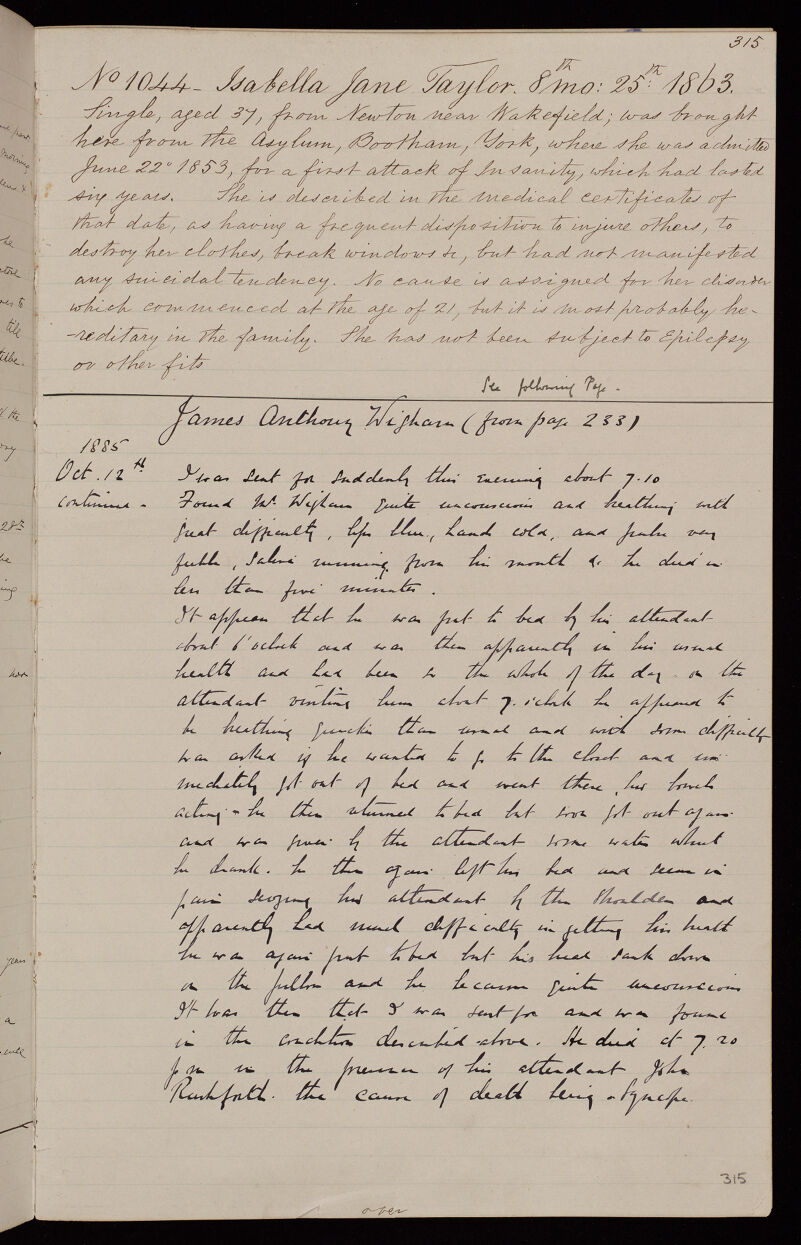 315
No 1044 - Isabella Jane Taylor. 8th mo: 25th: 1863.
Single, aged 37, from Newton near Wakefield; was brought
here from the Asylum, Bootham, York, where she was admitted
June 22d 1853, for a first attack of Insanity, which had lasted
six years. She is described in the medical certificates of
that date, as having a frequent disposition to injure others, to
destroy her clothes, break windows &c, but had not manifested
any suicidal tendency. No cause is assigned for her disorder
which commenced at the age of 21, but it is most probably he-
-reditary in the family. She has not been subject to Epilepsy
or other fits
See following Page -
James Anthony Wigham (from page 233)
1885
Oct. 12th I was sent for suddenly this evening about 7.10
continued - Found Mr. Wigham quite unconscious and breathing with
great difficulty, lips blue, hands cold, and pulse very
feeble, saliva running from his mouth & he died in
less than five minutes.
It appears that he was put to bed by his attendant
about 6 o'clock and was then apparently in his usual
health and had been so the whole of the day - on the
attendant visiting him about 7. o'clock he appeared to
be breathing quicker than usual and with some difficulty
was asked if he wanted to go to the closet and im-
mediately got out of bed and went there, his bowels
acting - he then returned to bed but soon got out again
and was given by the attendant some water which
he drank. he then again left his bed and seem in
pain seizing his attendant by the shoulders and
apparently had much difficulty in getting his breath
he was again put to bed but his head sank down
on the pillow and he became quite unconscious
It was then that I was sent for and was found
in the condition described above. He died at 7.20
pm in the presence of his attendant John
Rushforth. the cause of death being - Syncope.
315
over